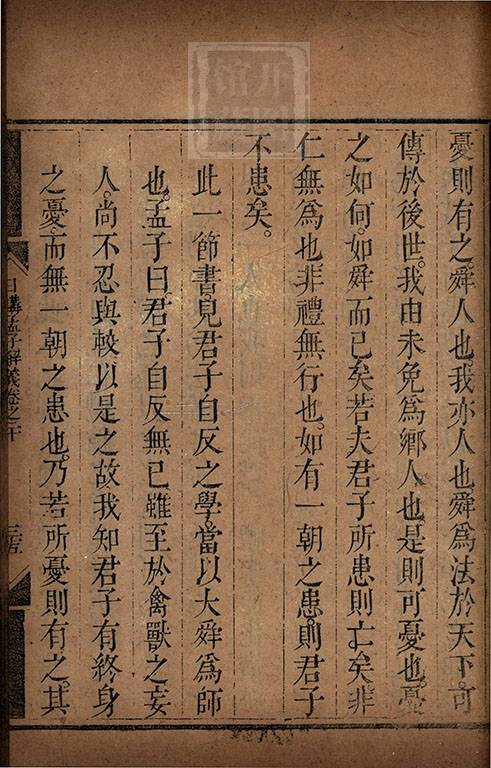 憂則有之舜人也我亦人也舜為法於天下可
傳於後世。我由未免為鄉人也是則可憂也。憂
之如何。如舜而已矣若夫君子所患則亡矣非
仁無為也非禮無行也。如有一朝之患。則君子
不患矣。
此一節書。見君子自反之學。當以大舜為師
也。孟子曰君子自反無已雖至於禽獸之妄
人。尚不忍與較以是之故我知君子有終身
之憂。而無一朝之患也。乃若所憂則有之。其
日講孟子解義卷之二十
三五